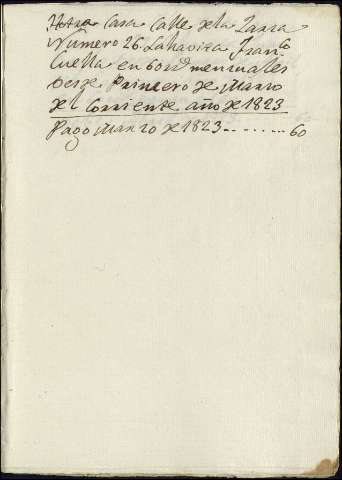 Otra Casa Calle de la Zarza
Numero 26. La havita Fran.co
Cuella en 60 rs mensuales
desde Primero de Marzo
del Corriente año de 1823
Pago Marzo de 1823 - - . - . . . - 60